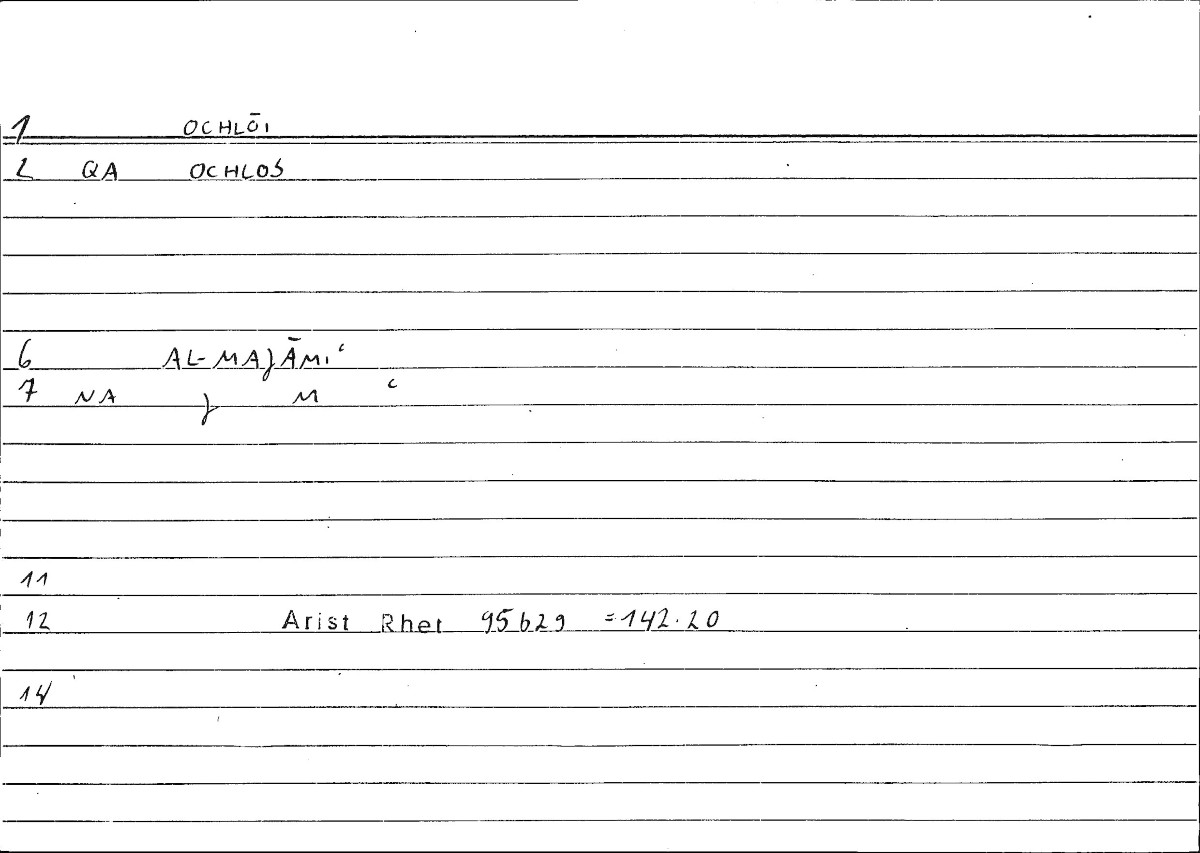 1 OCHLŌI
2 QA OCHLOS
6 AL-MAJĀMIʿ
7 NA J M ʿ
11
12 Arist Rhet 95b29 =142.20
14